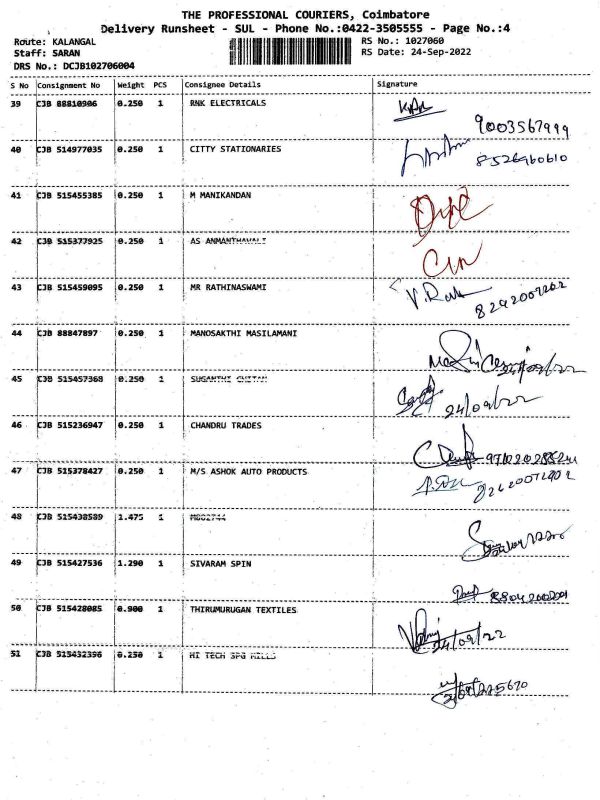 THE PROFESSIONAL COURIERS, Coimbatore
Delivery Runsheet - SUL - Phone No.:0422-3505555 - Page No.:4
Route: KALANGAL RS No.: 1027060
Staff: SARAN RS Date: 24-Sep-2022
DRS No.: DCJB102706004
S No Consignment No Weight PCS Consignee Details Signature
39 CJB 88810906 0.250 1 RNK ELECTRICALS
9003567999
40 CJB 514977035 0.250 1 CITTY STATIONARIES
8526960610
41 CJB 515455385 0.250 1 M MANIKANDAN
42 CJB 515377925 0.250 1 AS ANMANTHAVALI
43 CJB 515459095 0.250 1 MR RATHINASWAMI
8292007202
44 CJB 88847897 0.250 1 MANOSAKTHI MASILAMANI
45 CJB 515457368 0.250 1 SUGANTHI CHETAN
24/09/22
46 CJB 515236947 0.250 1 CHANDRU TRADES
47 CJB 515378427 0.250 1 M/S ASHOK AUTO PRODUCTS
48 CJB 515438589 1.475 1
49 CJB 515427536 1.290 1 SIVARAM SPIN
50 CJB 515428085 0.900 1 THIRUMURUGAN TEXTILES
24/09/22
51 CJB 515432396 0.250 1 HI TECH SPG MILLS